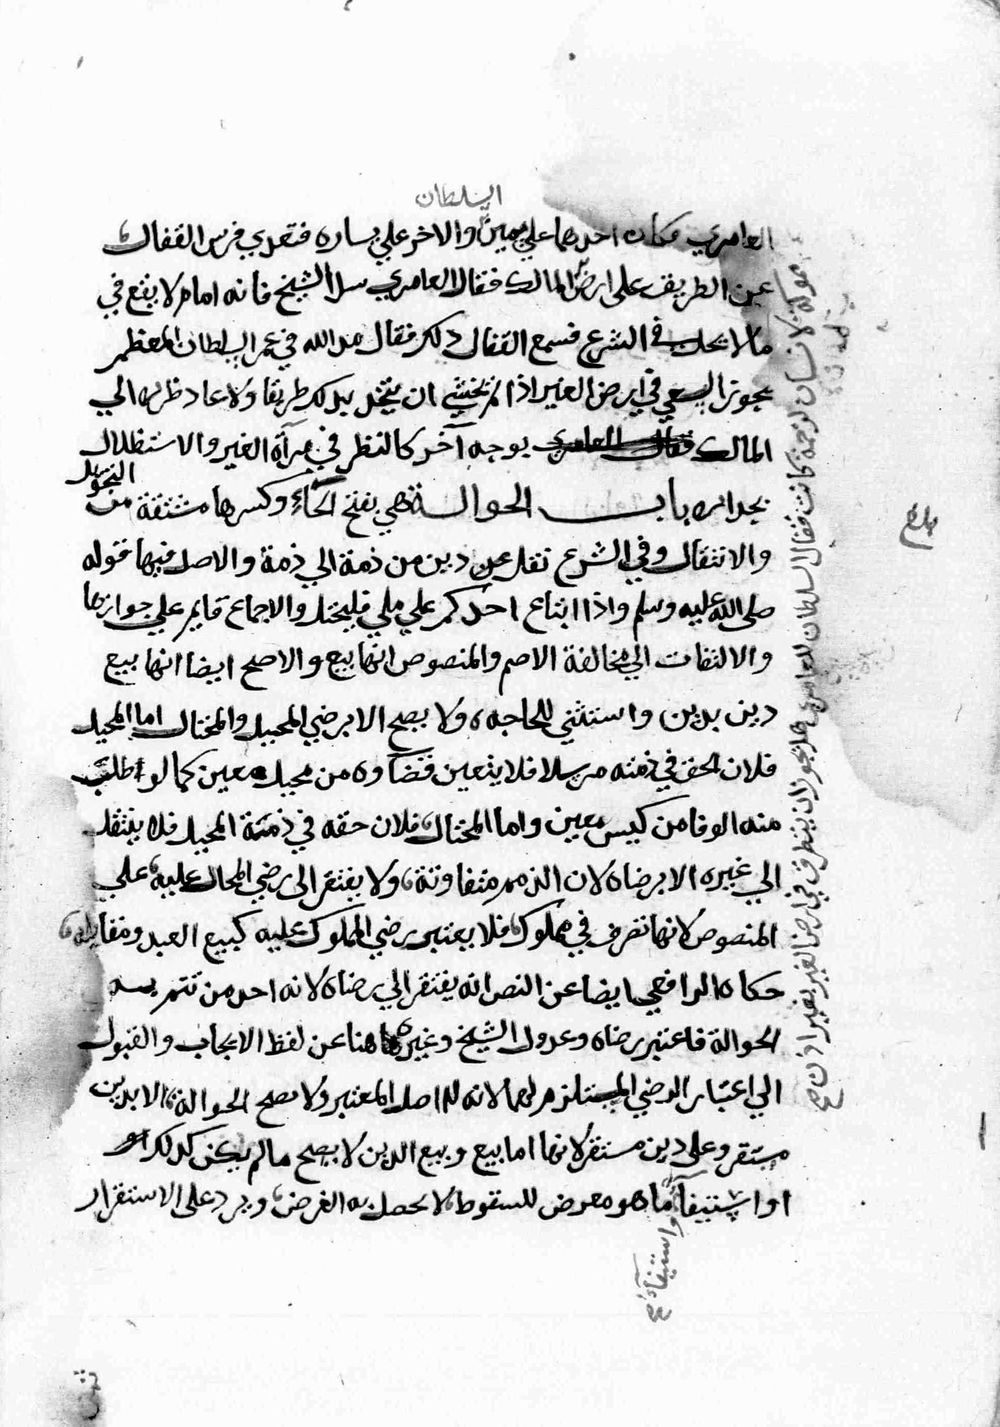 السلطان
العامري فكان احدهما علي يمين والاخر علي يساره فتعدي فرس القفال
عن الطريق على ارض المالك فقال العامري سل الشيخ فانه امام لا يقع في
مالا يحل في الشرع فسمع القفال ذلك فقال مد الله في عمر السلطان المعظم
يجوز السعي في ارض الغير اذا لم يخش ان يتخذ بذلك طريقا ولا عاد ضرره الي
المالك بوجه آخر كالنظر في مرآة الغير والاستظلال
بجداره باب الحوالة هي بفتح الحاء وكسرها مشتقة من
التحويل
والانتقال وفي الشرع نقل دين من ذمة الي ذمة والاصل فيها قوله
صلى الله عليه وسلم واذا اتباع احدكم علي ملي فليحتل والاجماع قايم علي جوازها
والالتفات الي مخالفة الاصم والمنصوص انها بيع والاصح ايضا انها بيع
دين بدين واستثني للحاجه ولا يصح الا برضي المحيل والمحتال اما المحيل
فلان الحق في ذمته مرسلا فلا يتعين قضاوه من محيل معين كما لو طلب
منه الوفا من كيس معين واما المحتال فلان حقه في ذمة المحيل فلا ينتقل
الي غيره الا برضاه لان الذمم متفاوتة ولا يفتقر الى رضي المحال عليه علي
المنصوص لانها تصرف في مملوك فلا يعتبر رضي المملوك عليه كبيع العبد ومقابله
حكاه الرافعي ايضا عن النص انه يفتقر الي رضاه لانه احد من تتم به
الحوالة فاعتبر رضاه وعدول الشيخ وغيره هاهنا عن لفظ الايجاب والقبول
الي اعتبار الرضي المستلزم لهما لانه الاصل المعتبر ولا تصح الحوالة الا بدين
مستقر وعلى دين مستقر لانها اما بيع وبيع الدين لا يصح مالم يكن كذلك
او استيفآ ما هو معرض للسقوط لا يحصل به الغرض ويرد على الاستقرار
واستيفآء
لانسان لو كانت فقال السلطان للعامري هل يجوز ان ينظر في مرضا الغير بغير اذن